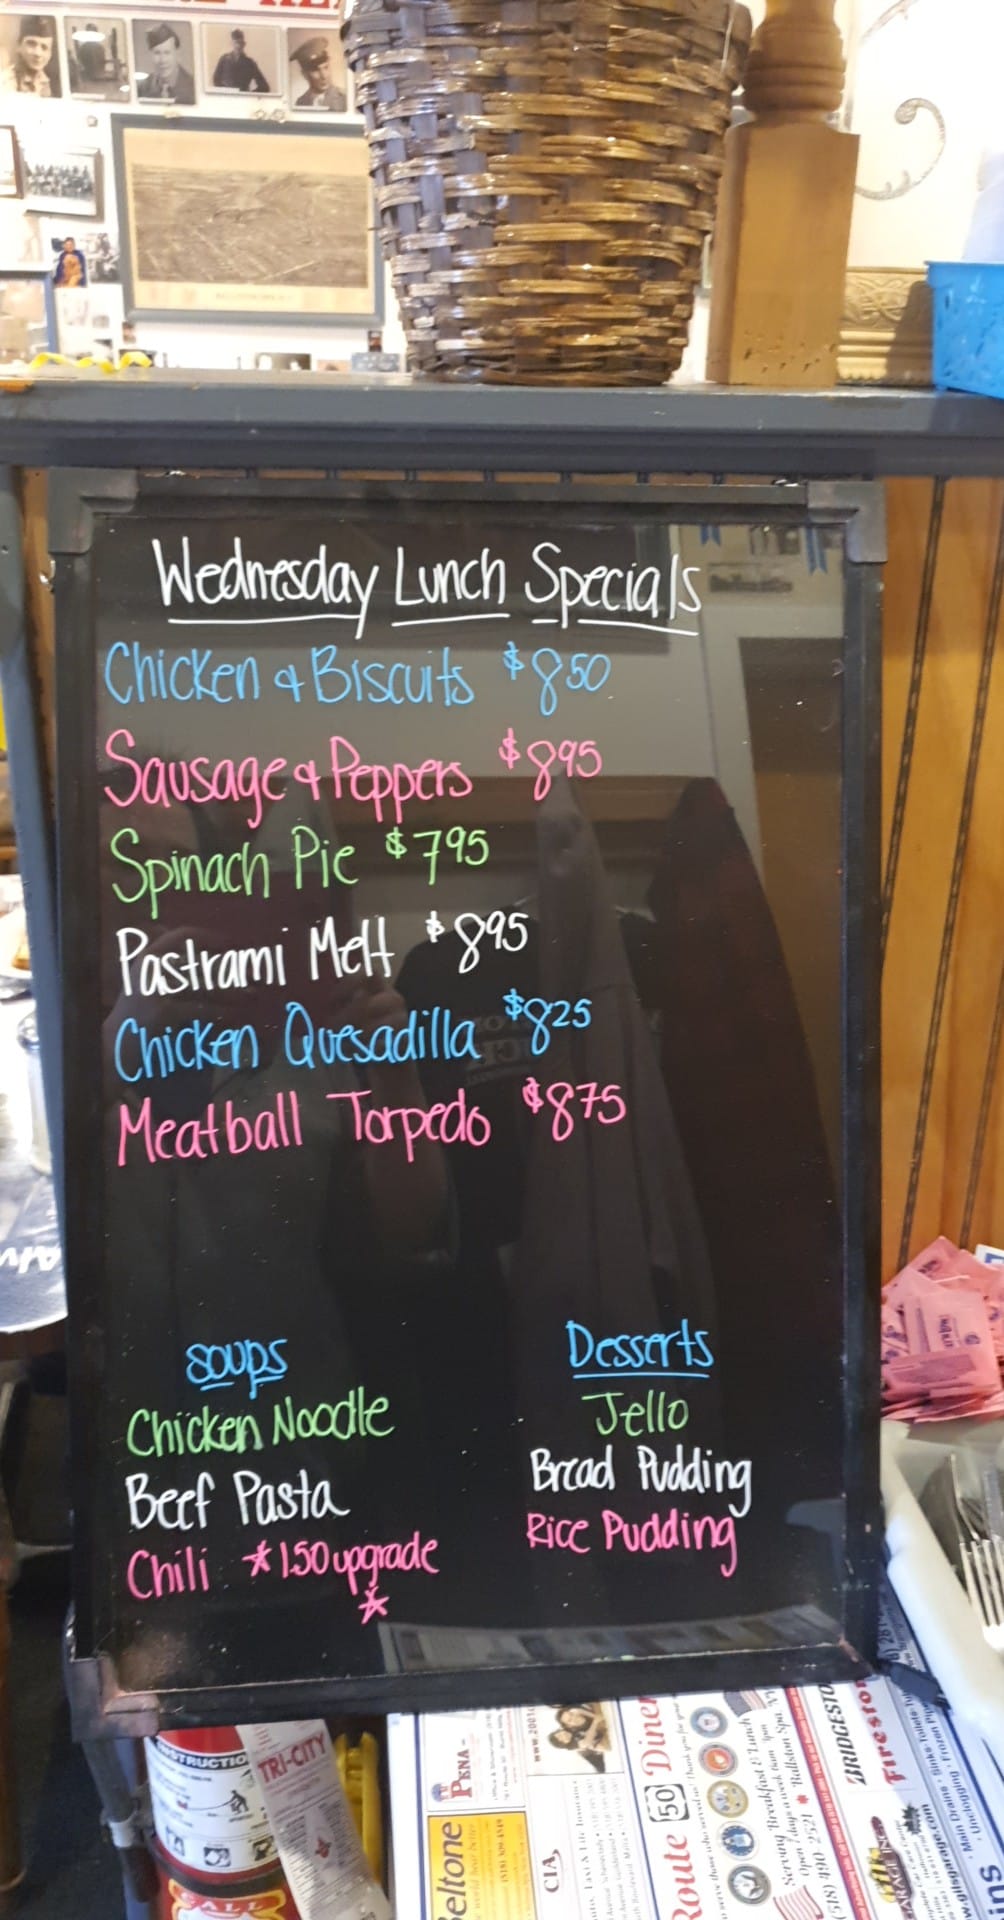 Wednesday Lunch Specials
Chicken & Biscuits $8.50
Sausage & Peppers $8 95
Spinach Pie $7 95
Pastrami Melt $8 95
Chicken Quesadilla $8 25
Meatball Torpedo $8 75
Soups
Chicken Noodle
Beef Pasta
Chili *1.50 upgrade
*
Desserts
Jello
Bread Pudding
Rice Pudding
TRI-CITY
PENA
eltone
CIA
Route 50 Diner
Serving Breakfast & Lunch
Open 7 days a week 6am - 1pm
(518) 490-2521 * Ballston Spa, NY
BRIDGESTO
Firesto